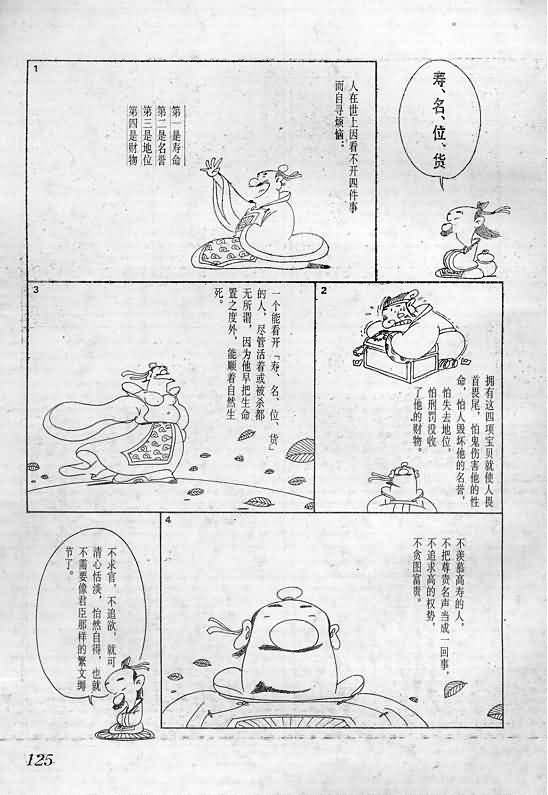 寿、名、位、货
1
人在世上因看不开四件事
而自寻烦恼：
第一是寿命
第二是名誉
第三是地位
第四是财物
2
拥有这四项宝贝就使人畏
首畏尾，怕鬼伤害他的性
命，怕人毁坏他的名誉，
怕失去地位，
怕刑罚没收
了他的财物。
3
一个能看开「寿、名、位、货」
的人，尽管活着或被杀都
无所谓，因为他早把生命
置之度外，能顺着自然生
死。
4
不羡慕高寿的人，
不把尊贵名声当成一回事，
不追求高的权势，
不贪图富贵。
不求官，不追欲，就可
清心恬淡，怡然自得，也就
不需要像君臣那样的繁文缛
节了。
125